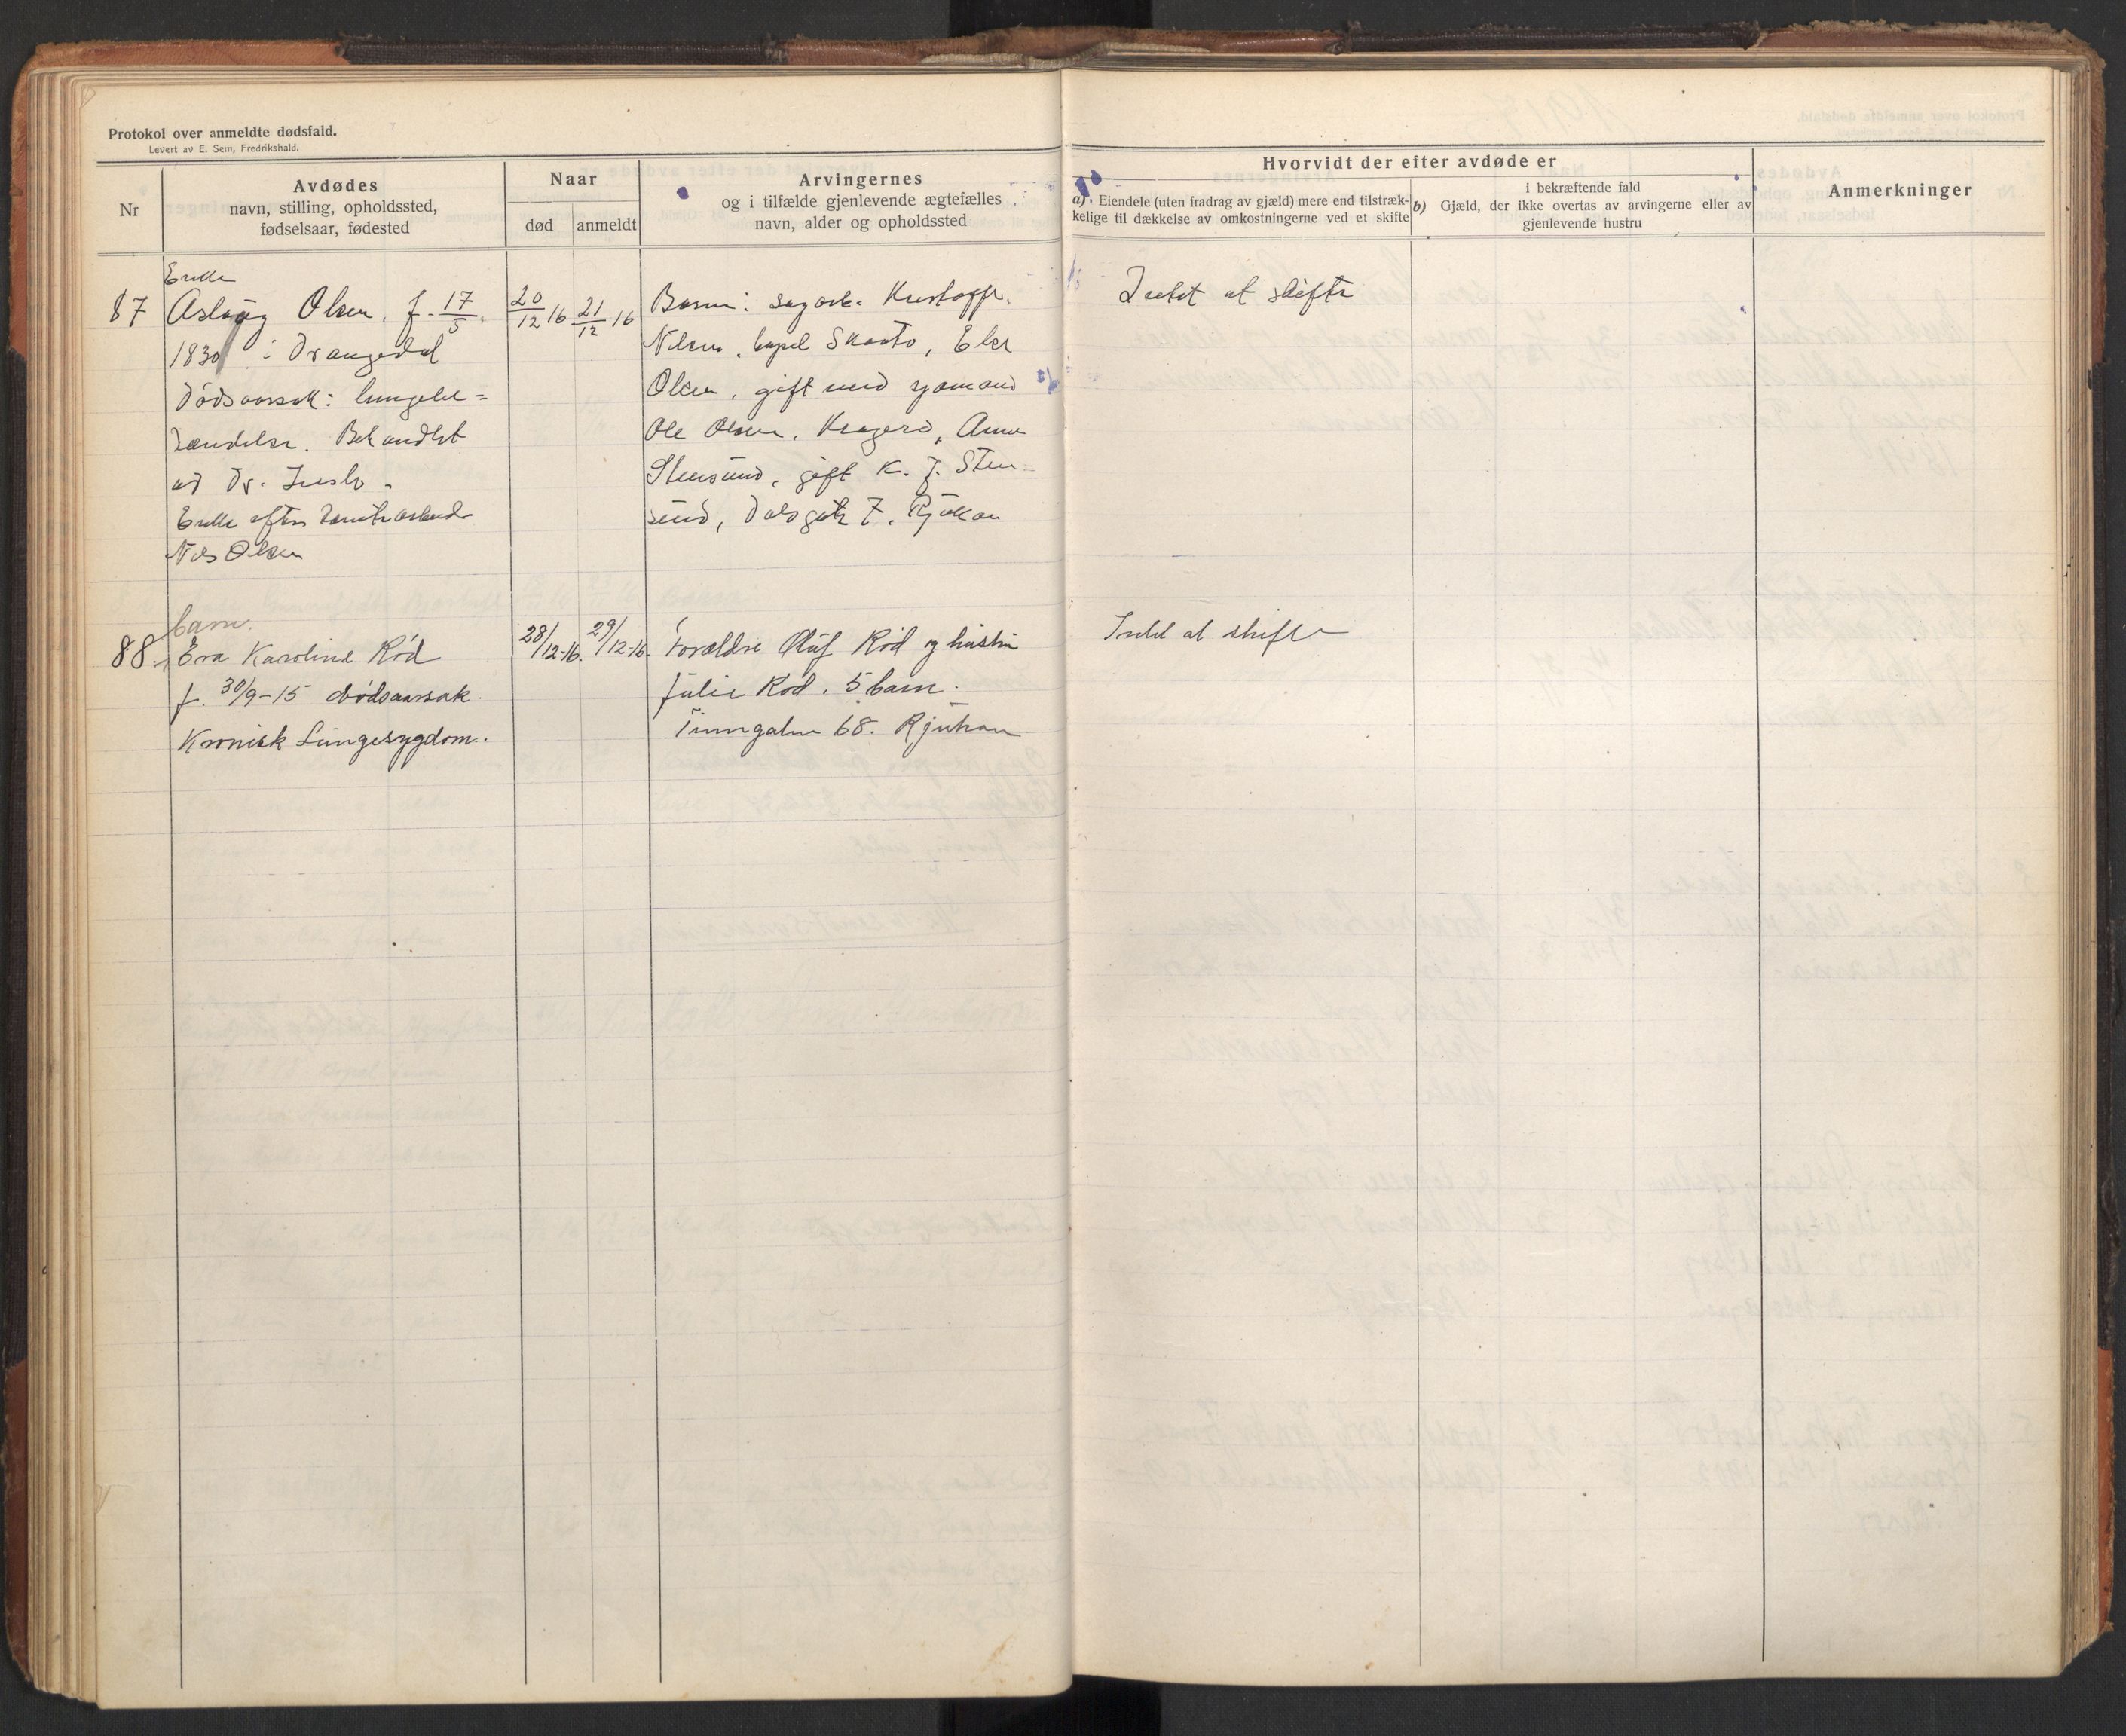 Protokol over anmeldte dødsfald.
Levert av E. Sem, Fredrikshald.
Nr
Avdødes
navn, stilling, opholdssted,
fødselsaar, fødested
Naar
død
anmeldt
Arvingernes
og i tilfælde gjenlevende ægtefælles
navn, alder og opholdssted
Hvorvidt der efter avdøde er
a) Eiendele (uten fradrag av gjæld) mere end tilstræk-
kelige til dækkelse av omkostningerne ved et skifte
i bekræftende fald
b) Gjæld, der ikke overtas av arvingerne eller av
gjenlevende hustru
Anmerkninger
Enke
87 Aslaug Olsen. f. 17/5
1830 i Drangedal
Dødsaarsak: lungebe=
tændelse. Behandlet
ad Dr.
Enke efter
Nils Olsen
20/12 16 21/12 16
Barn: Kristoffer
Nilsen, Skaato, Else
Olsen, gift med sjømand
Ole Olsen, Kragerø, Anne
Stensund, gift K. J. Sten=
sund, Dalsgate 7, Rjukan
Intet at skifte
barn.
88. Eva Karoline Rød
f. 30/9-15 dødsaarsak
Kronisk Lungesygdom.
28/12-16. 29/12-16.
Forældre Oluf Rød og hustru
Julie Rød. 5 barn.
Tinngaten 68. Rjukan
Intet at skifte